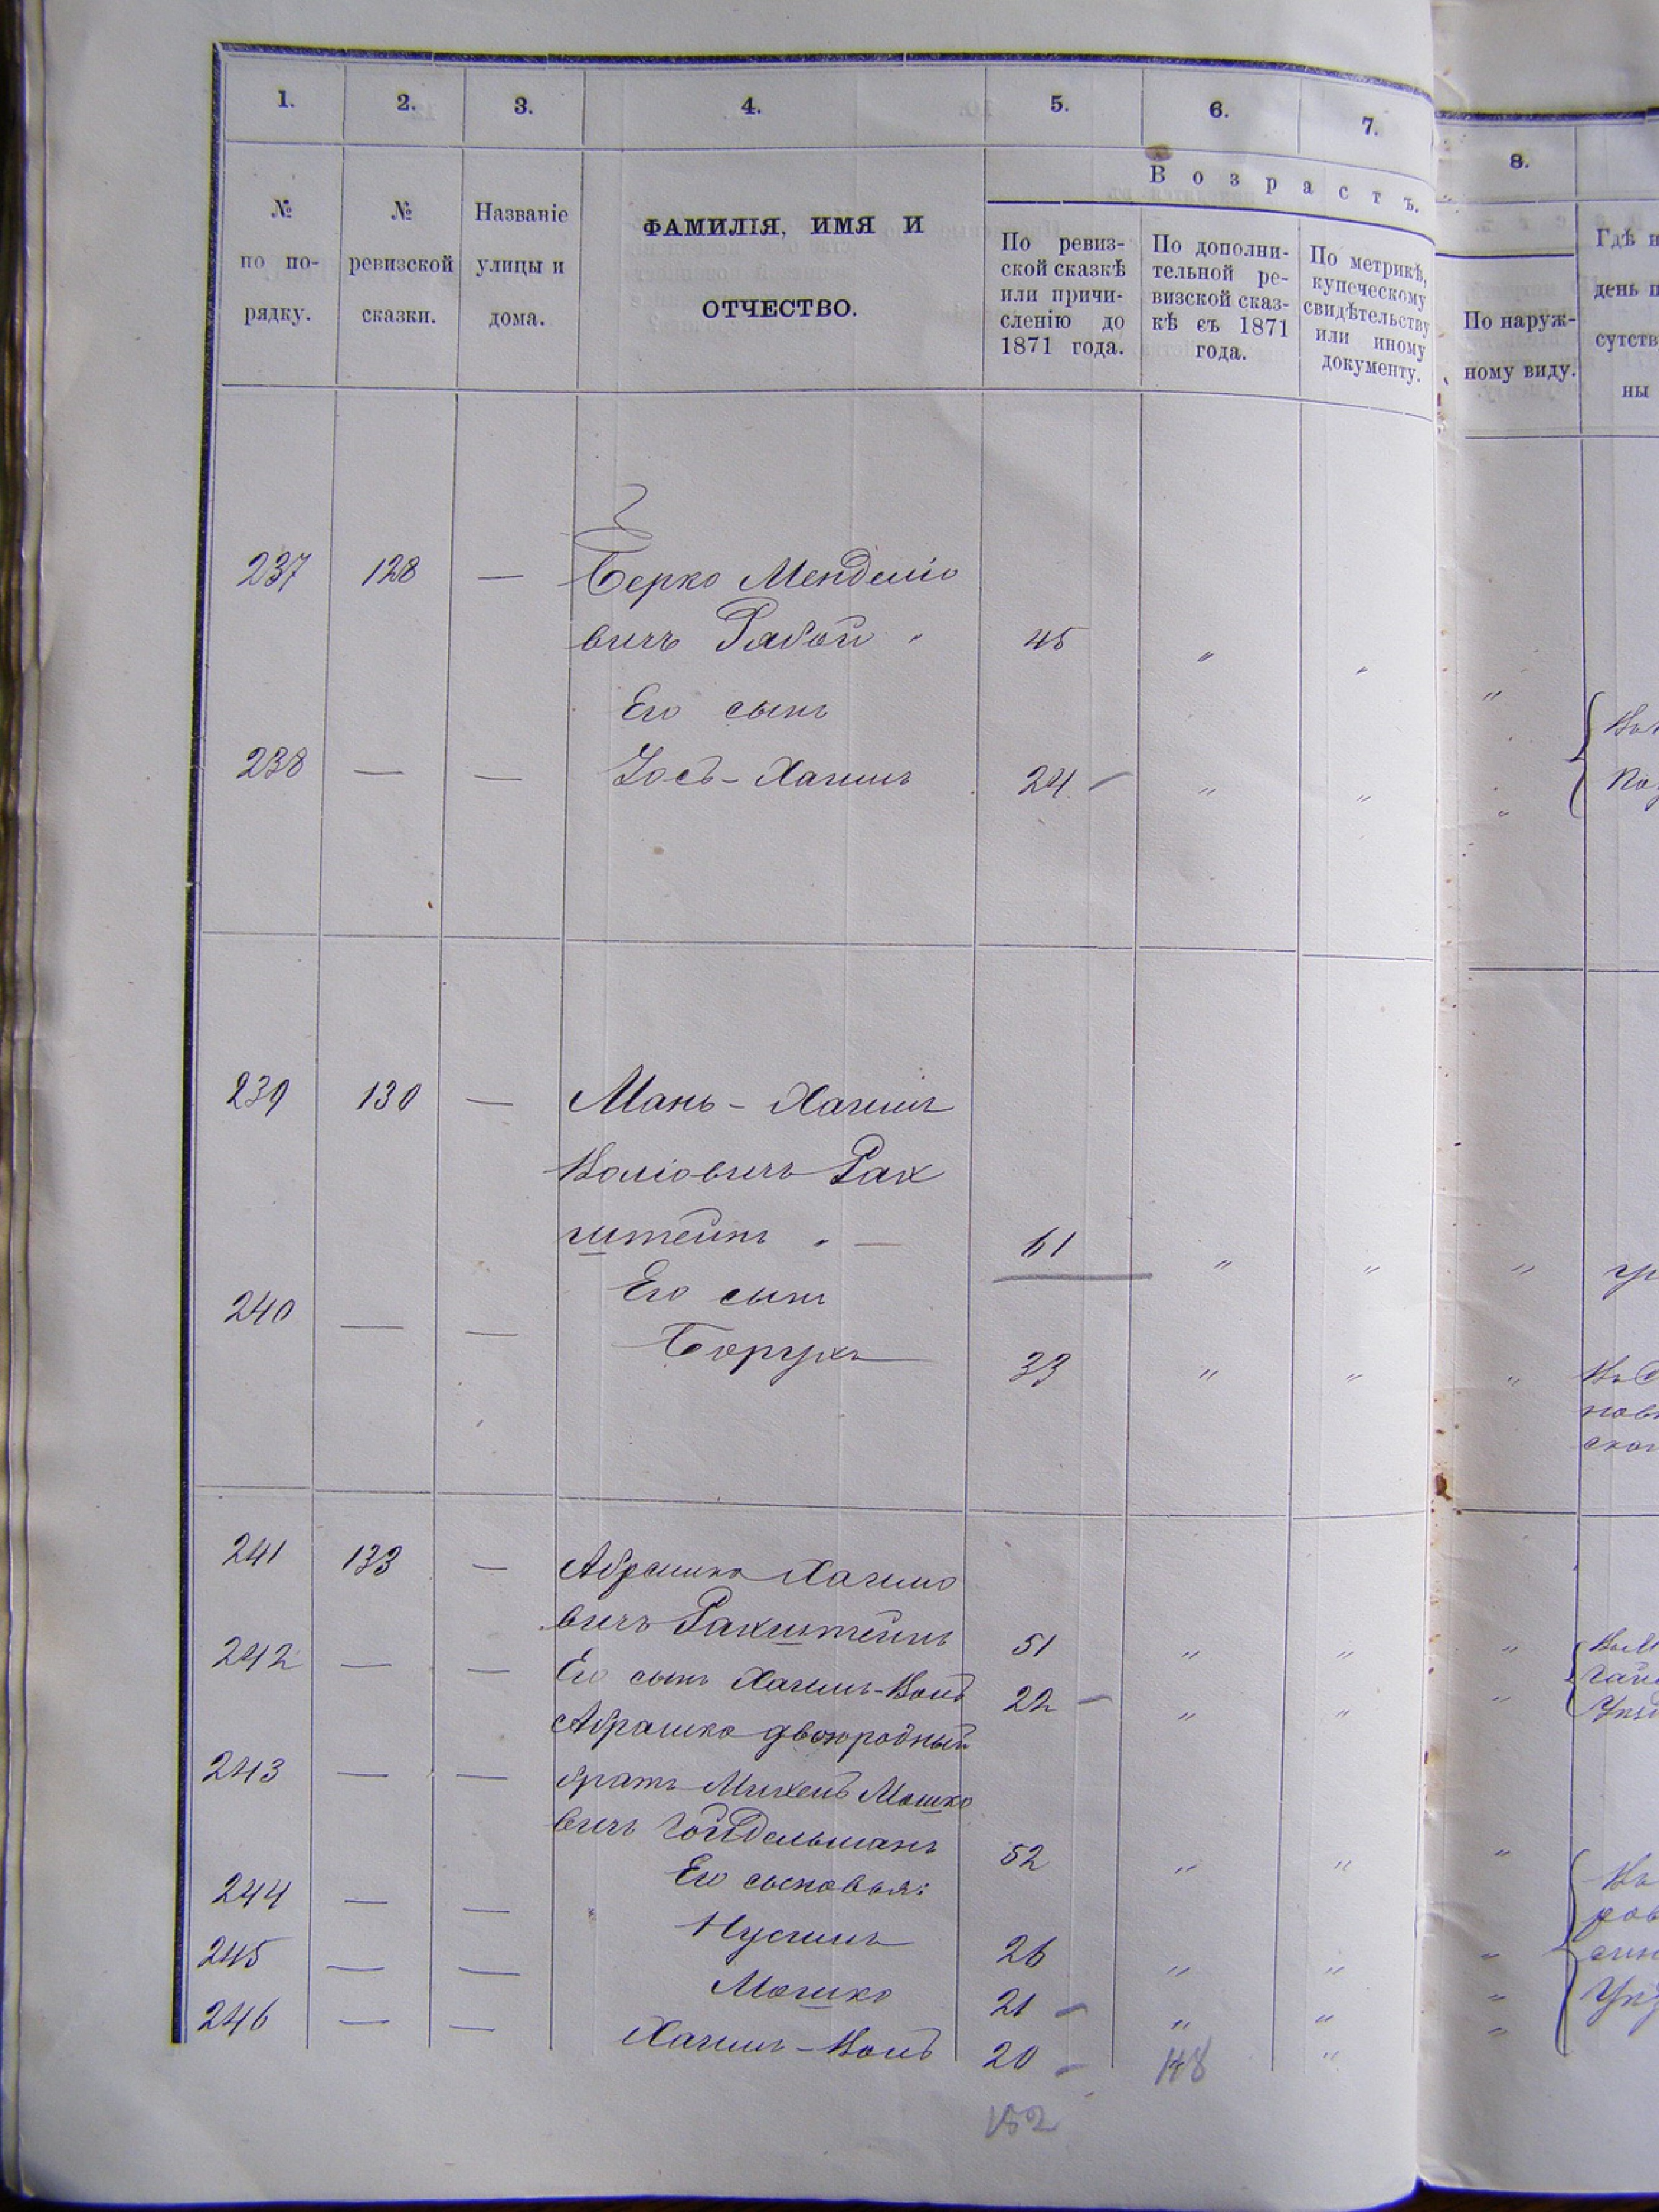 1. 2. 3. 4. 5. 6. 7. 8.
№ по по- рядку.
№ ревизской сказки.
Названіе улицы и дома.
ФАМИЛІЯ, ИМЯ И
ОТЧЕСТВО.
Возрастъ.
По ревиз-
ской сказкѣ
или причи-
сленію до
1871 года.
По дополни-
тельной ре-
визской сказ-
кѣ съ 1871
года.
По метрикѣ,
купеческому
свидѣтельству
или иному
документу.
По наруж-
ному виду.
Гдѣ н
день п
сутств
ны
237 128 — Берко Менделіо
вичъ Рабой " 45 " " "
Его сынъ
238 — — Іось-Хаимъ 24 " " "
239 130 — Мань-Хаимъ
Воліовичъ Рах
штейнъ . — 61 " " "
Его сынъ
240 — — Борухъ 33 " " "
241 133 — Абрашко Хаимо
вичъ Рахштейнъ 51 " " "
242 — — Его сынъ Хаимъ-Воль 22 " " "
Абрашко двоюродный
243 — — братъ Михель Мошко
вичъ Гойдельманъ 52 " " "
Его сыновья:
244 — — Нусимъ 26 " " "
245 — — Мошко 21 " " "
246 — — Хаимъ-Воль 20 148 " "
152